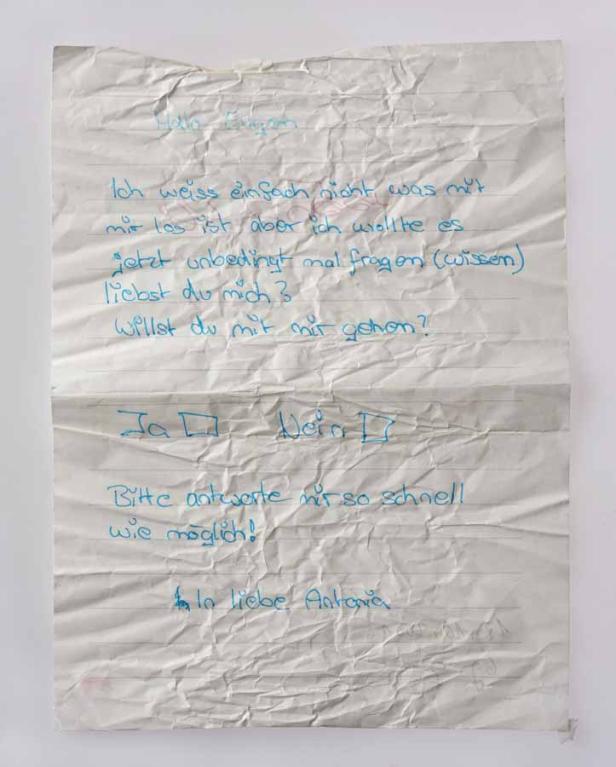 Hallo
Ich weiss einfach nicht was mit
mir los ist aber ich wollte es
jetzt unbedingt mal fragen (wissen)
liebst du mich?
willst du mit mir gehen?
Ja Nein
Bitte antworte mir so schnell
wie möglich!
In liebe Antonia